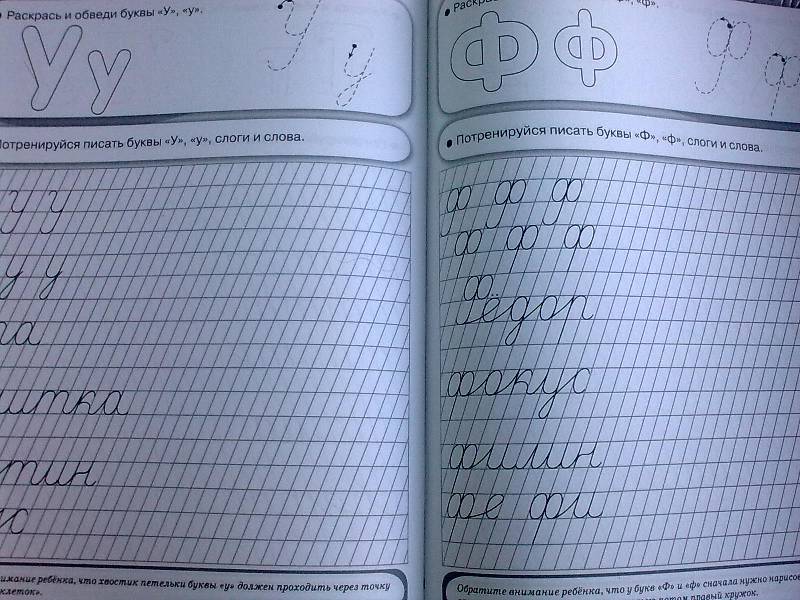 Раскрась и обведи буквы «У», «у».
У у
У у
Потренируйся писать буквы «У», «у», слоги и слова.
У У
у у
тин
внимание ребёнка, что хвостик петельки буквы «у» должен проходить через точку
клеток».
«ф».
Ф ф
ф ф
Потренируйся писать буквы «Ф», «ф», слоги и слова.
Ф Ф Ф
ф ф ф
Фёдор
фокус
филин
фе фи
Обратите внимание ребёнка, что у букв «Ф» и «ф» сначала нужно
потом правый кружок.